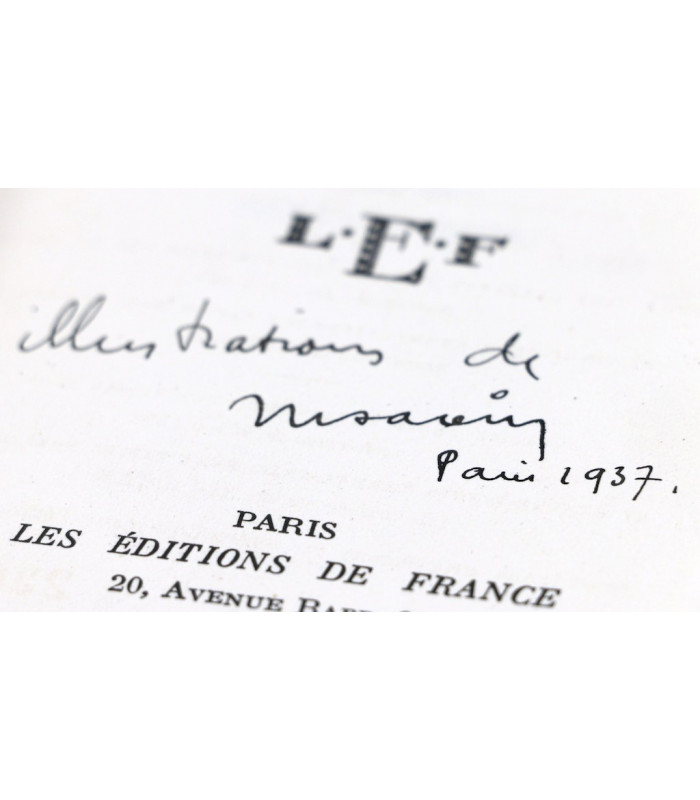 L·E·F
illustrations de
Paris 1937.
PARIS
LES ÉDITIONS DE FRANCE
20, AVENUE RAPP